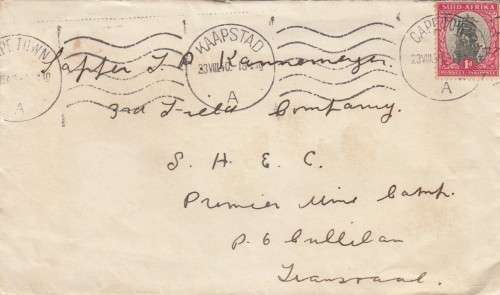 CAPE TOWN
A
KAAPSTAD
23 VIII 40
A
CAPE TOWN
23 VIII
A
SUID-AFRIKA
1D
Sapper J. P. Kannemeyer
3rd Field Company.
S. H. E. C.
Premier Mine Camp.
P. O Cullilan
Transvaal.